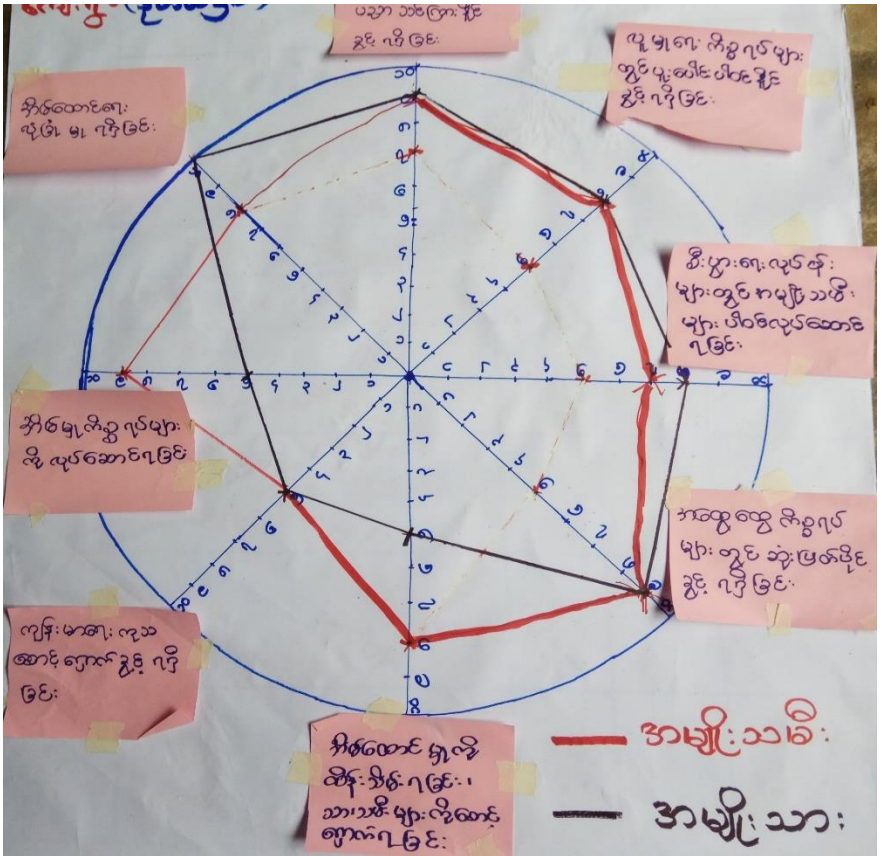 ပညာ သင်ကြားနိုင်
ခွင့် ရရှိခြင်း
လူမှုရေး ကိစ္စရပ်များ
တွင် ပူးပေါင်းပါဝင်နိုင်
ခွင့် ရရှိခြင်း
အိမ်ထောင်ရေး
လုံခြုံ မှု ရရှိခြင်း
စီးပွားရေးလုပ်ငန်း
များတွင် အမျိုးသမီး
များ ပါဝင်လုပ်ဆောင်
ရခြင်း
အိမ်မှုကိစ္စရပ်များ
ကို လုပ်ဆောင်ရခြင်း
အထွေထွေ ကိစ္စရပ်
များ တွင် ဆုံးဖြတ်ပိုင်
ခွင့် ရရှိခြင်း
ကျန်းမာရေး ကုသ
စောင့်ရှောက်ခွင့် ရရှိ
ခြင်း
အိမ်ထောင်မှုကို
ထိန်းသိမ်းရခြင်း၊
သားသမီးများကိုစောင့်
ရှောက်ရခြင်း
အမျိုးသမီး
အမျိုးသား